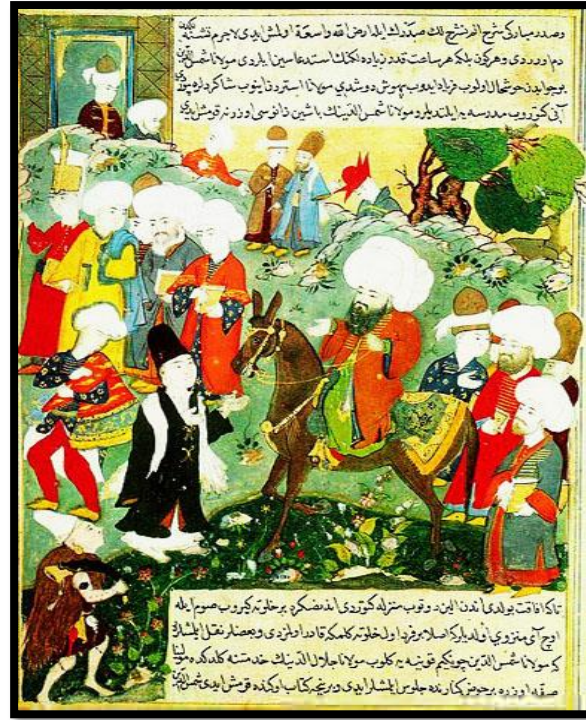 وصدر مباركى شرح الم نشرح لك صدرك ايله ارض الله واسعة اولمش ايدى لاجرم تشنه لكدن
دم اورردى وهر كون بلكه هر ساعت قدر زياده لكنك استدعاسين ايلردى مولانا شمس الدين
بو جوابدن خوشحال اولوب فرياد ايدوب بيهوش دوشدى مولانا استردن اينوب شاكردلره بيوردى
آنى كوتوروب مدرسه يه ايلتديلر و مولانا شمس الدينك باشين زانوسى اوزرنه قومش ايدى
تا كه افاقت بولدى اندن الين طوتوب منزله كوتوردى اندنصكره بر خلوته كيروب صوم ايله
اوچ آى منزوى اولديلر كه اصلا بر فرد اول خلوته كلمكه قادر اولمزدى و بعضلر نقل ايلمشلردر
كه مولانا شمس الدين چونكيم قونيه يه كلوب مولانا جلال الدينك خدمتنه كلدكده مولانا
صفه اوزره بر حوض كنارنده جلوس ايلمشلر ايدى و بر نيچه كتاب اوكنده قومش ايدى شمس الدين